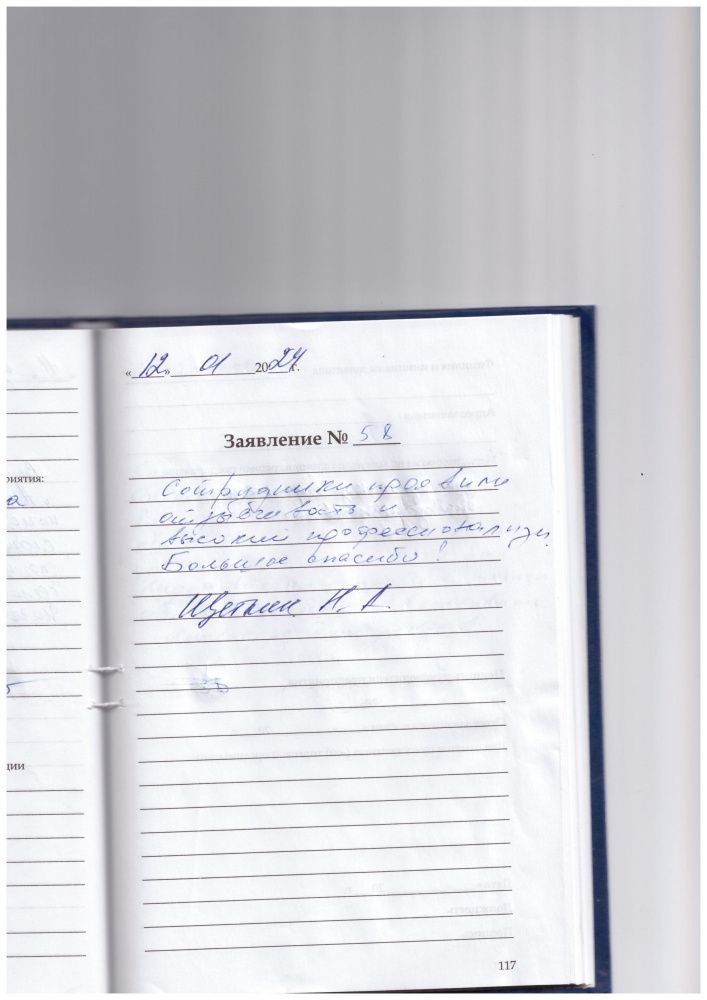 «12» 01 2024 г.
Заявление № 58
риятия:
а
Сотрудники проявили
отзывчивость и
высокий профессионализм.
Большое спасибо!
Щеткин Н. А.
ции
117